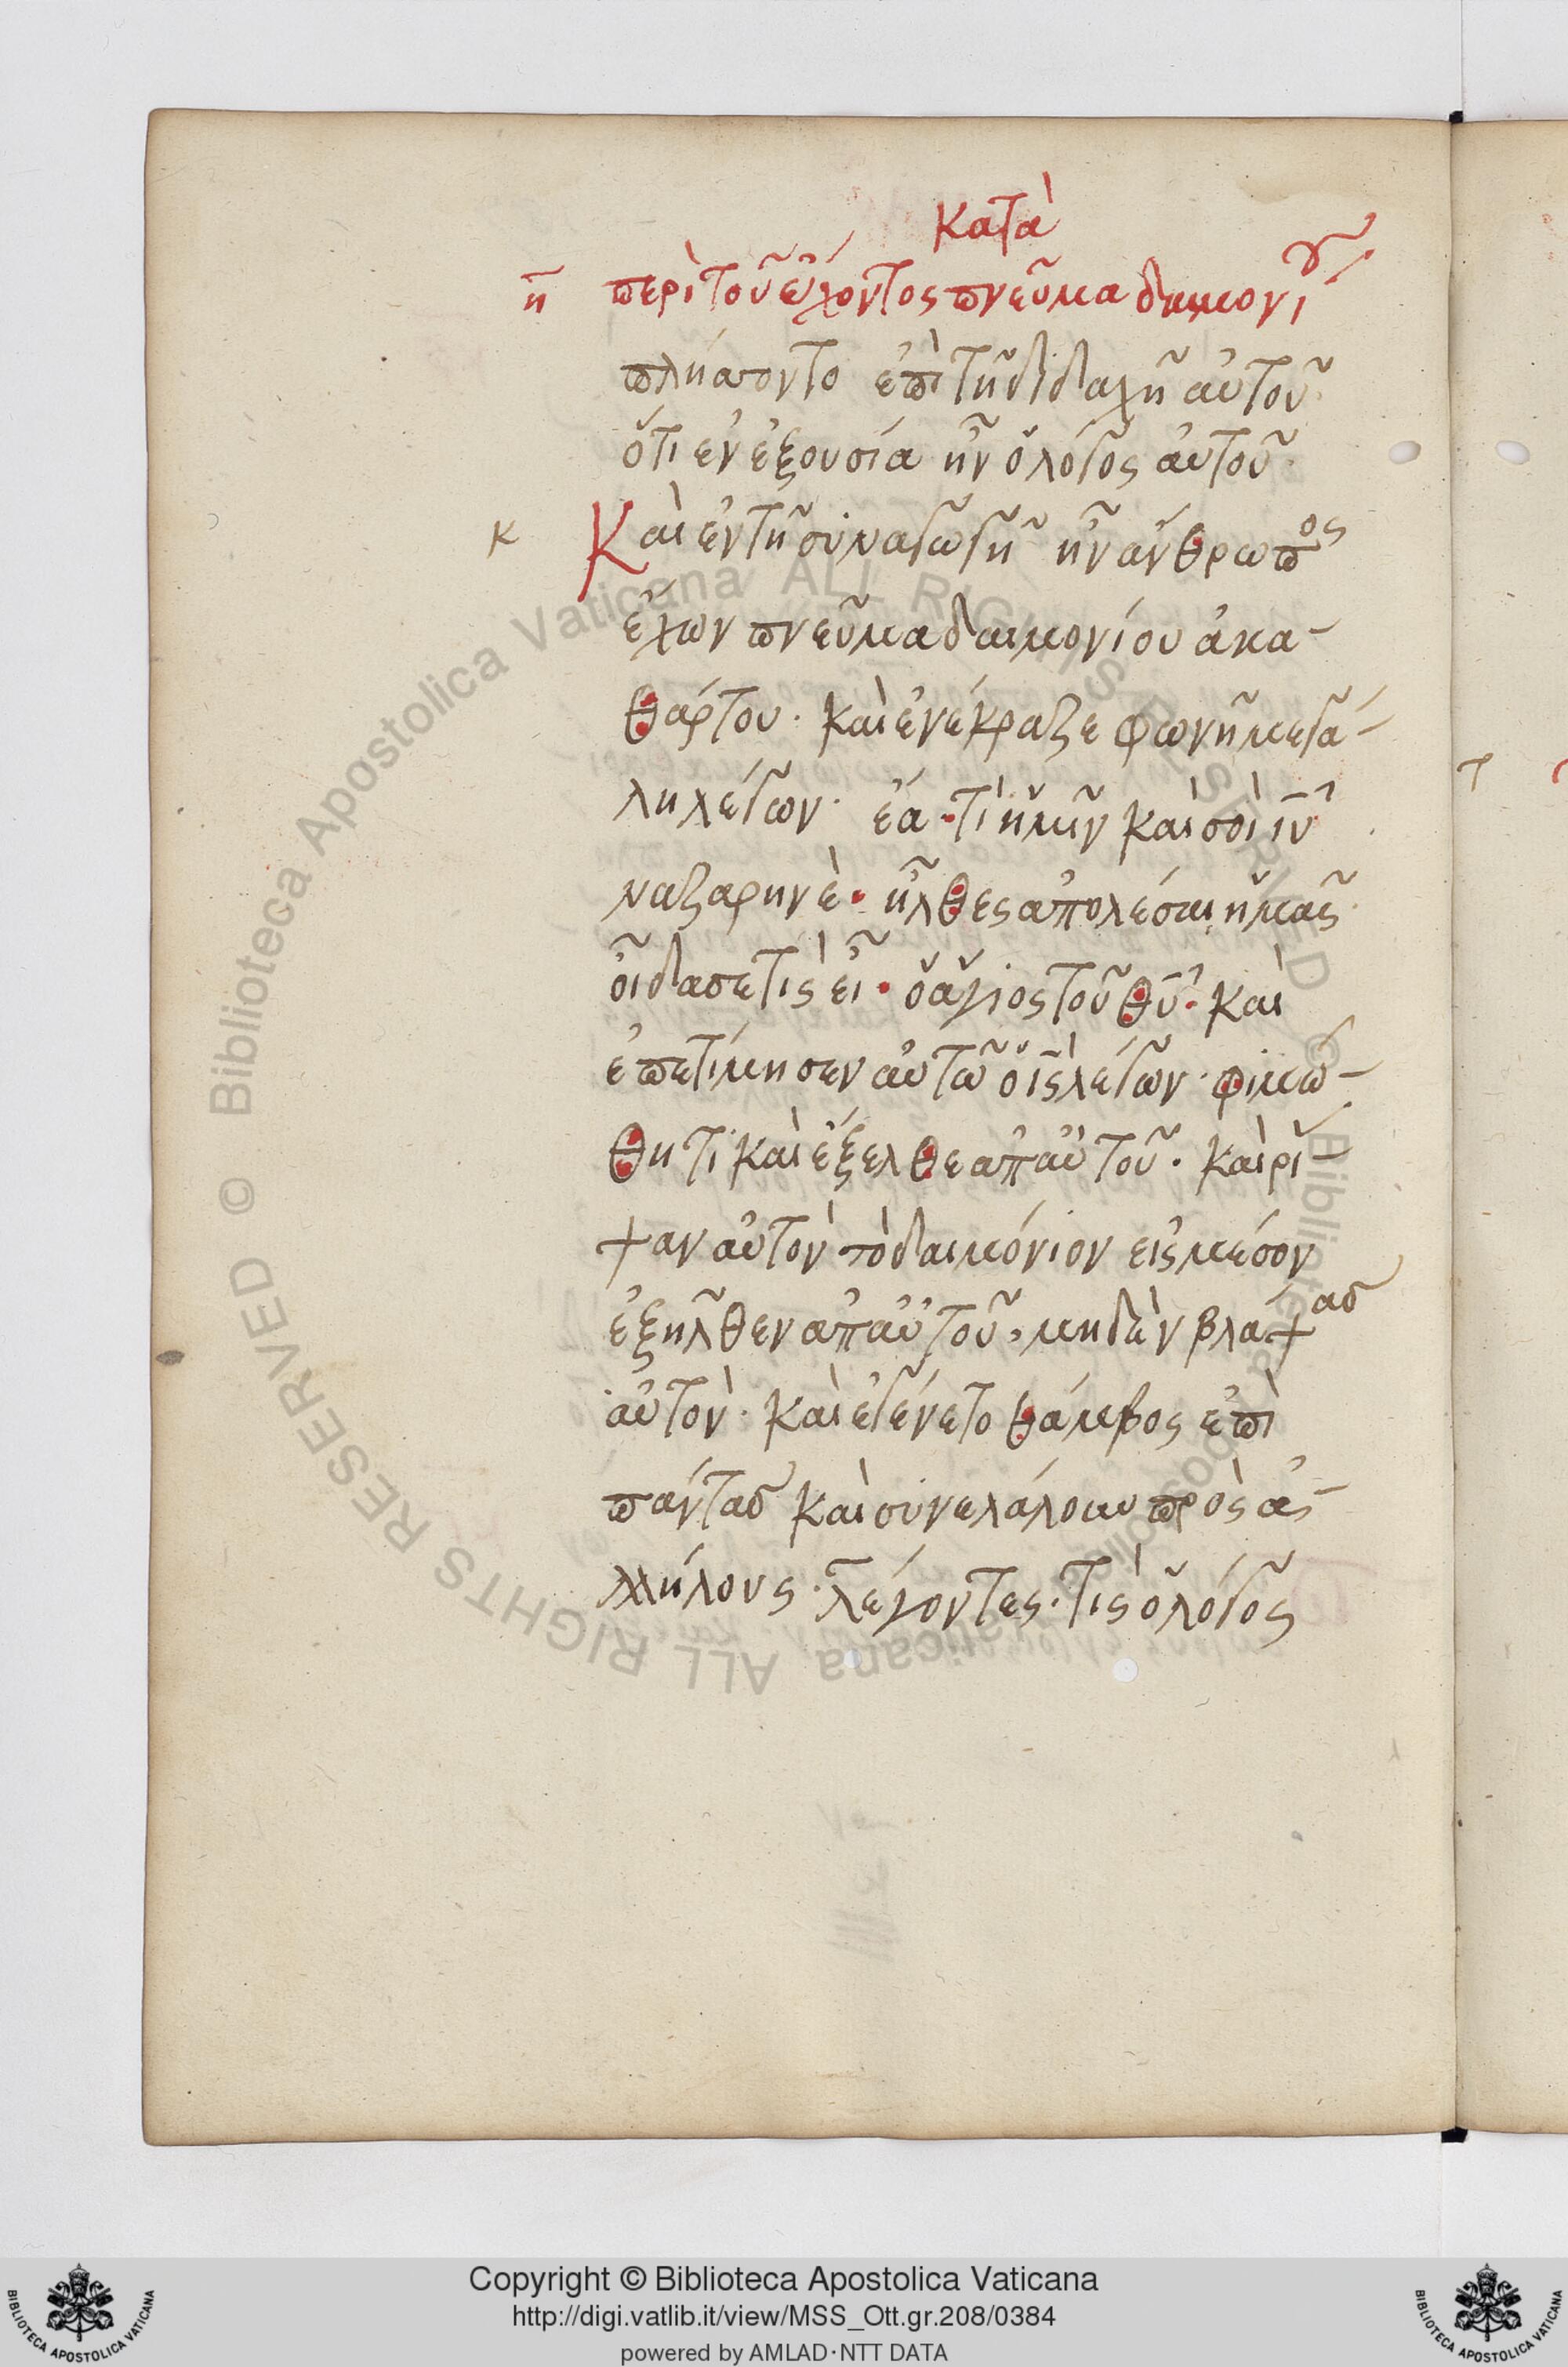 Κατὰ
η περὶ τοῦ ἔχοντος πνεῦμα δαιμονίου
πλήσσοντο ἐπὶ τῆ διδαχῆ αὐτοῦ·
ὅτι ἐν ἐξουσία ἦν ὁ λόγος αὐτοῦ·
κ Καὶ ἐν τῆ συναγωγῆ ἦν ἄνθρωπος
ἔχων πνεῦμα δαιμονίου ἀκα-
θάρτου· καὶ ἐνέκραξε φωνῆ μεγά-
λη λέγων· ἔα· τί ἡμῖν καὶ σοὶ ιυ
ναζαρηνέ· ἦλθες ἀπολέσαι ἡμᾶς·
οἶδα σε τίς εἶ· ὁ ἅγιος τοῦ θυ· και
ἐπετίμησεν αὐτῶ ὁ ις λέγων· φιμώ-
θητι καὶ ἔξελθε ἀπ αὐτοῦ· καὶ ρί-
ψαν αὐτὸν τὸ δαιμόνιον εἰς μέσον
ἐξῆλθεν ἀπ αὐτοῦ, μηδὲν βλάψαν
αὐτόν· καὶ ἐγένετο θάμβος ἐπὶ
πάντας καὶ συνελάλουν πρὸς ἀ-
λλήλους· λέγοντες· τίς ὁ λόγος
Copyright © Biblioteca Apostolica Vaticana
http://digi.vatlib.it/view/MSS_Ott.gr.208/0384
powered by AMLAD·NTT DATA
BIBLIOTECA APOSTOLICA VATICANA
BIBLIOTECA APOSTOLICA VATICANA
© Biblioteca Apostolica Vaticana ALL RIGHTS RESERVED
© Biblioteca Apostolica Vaticana ALL RIGHTS RESERVED